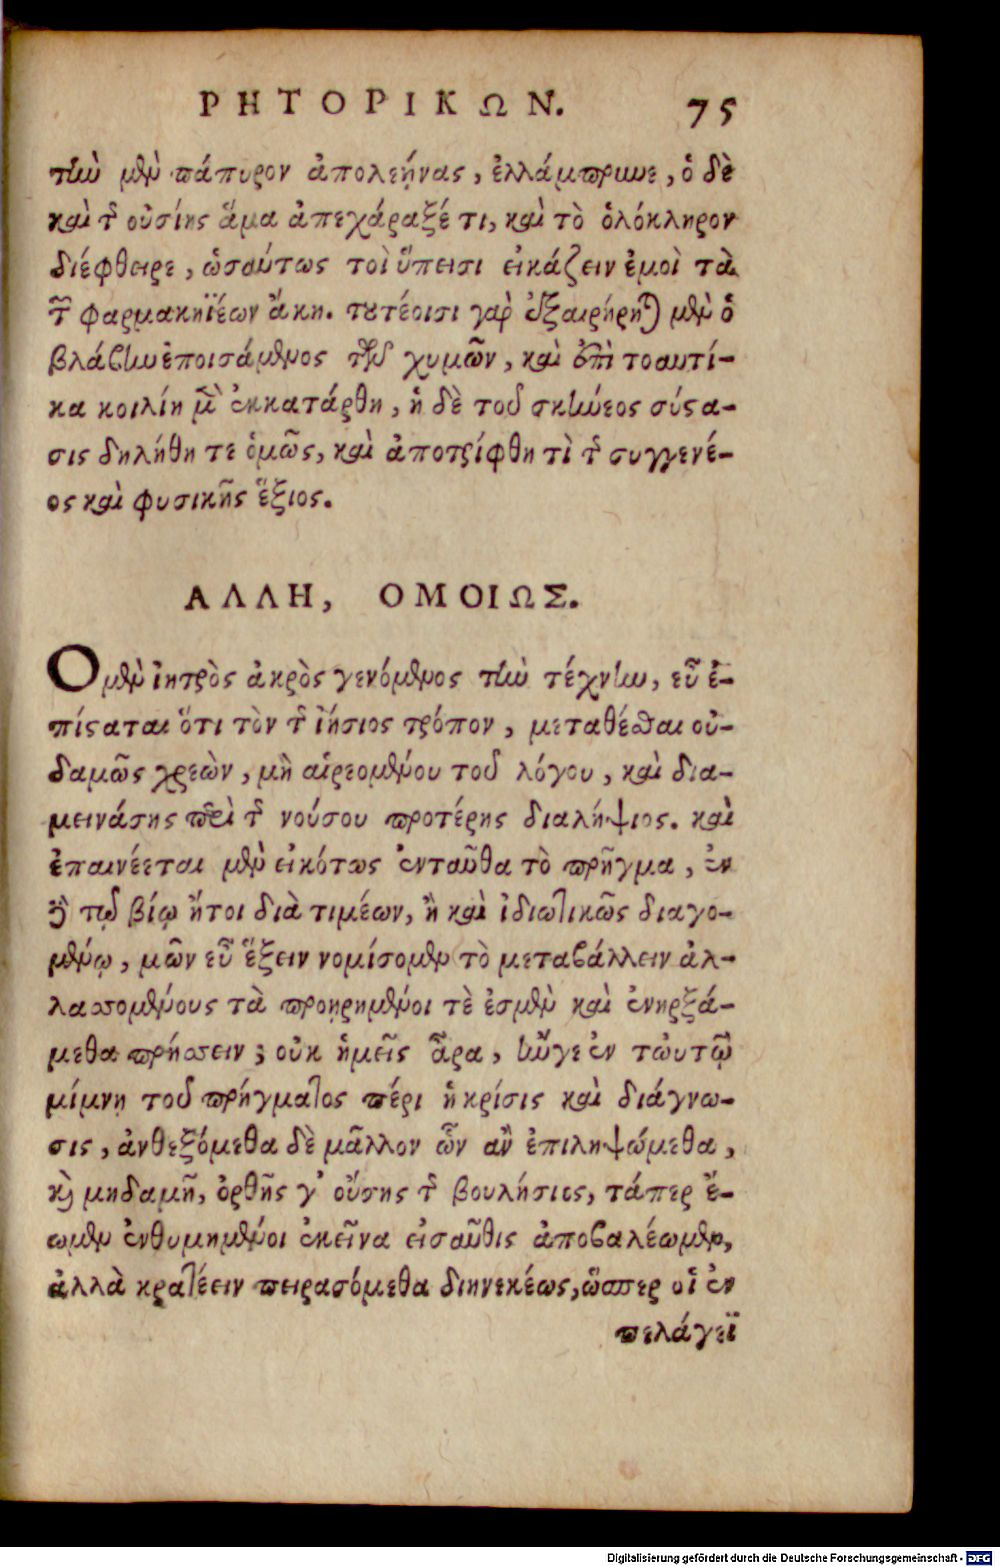 ΡΗΤΟΡΙΚΩΝ. 75
τὴν μὲν πάπυρον ἀπολεήνας, ἐλλάμπρυνε, ὁ δὲ
καὶ τῆς οὐσίης ἅμα ἀπεχάραξέ τι, καὶ τὸ ὁλόκληρον
διέφθειρε, ὡσαύτως τοὶ ὕπεισι εἰκάζειν ἐμοὶ τὰ
τῶν φαρμακηϊέων ἄκη. τουτέοισι γὰρ ἐξαιρήρηται μὲν ὁ
βλάβην ἐποισάμενος τῶν χυμῶν, καὶ ἐπὶ τοαυτί-
κα κοιλίη μὲν ἐκκατάρθη, ἡ δὲ τοῦ σκήνεος σύστα-
σις δηλήθη τε ὁμῶς, καὶ ἀποτρίφθη τὶ τῆς συγγενέ-
ος καὶ φυσικῆς ἕξιος.
ΑΛΛΗ, ΟΜΟΙΩΣ.
Ο μὲν ἰητρὸς ἀκρὸς γενόμενος τὴν τέχνην, εὖ ἐ-
πίσταται ὅτι τὸν τῆς ἰήσιος τρόπον, μεταθέσθαι οὐ-
δαμῶς χρεὼν, μὴ αἱρεομένου τοῦ λόγου, καὶ δια-
μεινάσης περὶ τῆς νούσου προτέρης διαλήψιος. καὶ
ἐπαινέεται μὲν εἰκότως ἐνταῦθα τὸ πρῆγμα, ἐν
δὲ τῷ βίῳ ἤτοι διὰ τιμέων, ἢ καὶ ἰδιωτικῶς διαγο-
μένῳ, μῶν εὖ ἕξειν νομίσομεν τὸ μεταβάλλειν ἀλ-
λασσομένους τὰ προῃρημένοι τὲ ἐσμὲν καὶ ἐνηρξά-
μεθα πρήσσειν; οὐκ ἡμεῖς ἆρα, ἤν γε ἐν τὠυτῷ
μίμνῃ τοῦ πρήγματος πέρι ἡ κρίσις καὶ διάγνω-
σις, ἀνθεξόμεθα δὲ μᾶλλον ὧν ἂν ἐπιληψώμεθα,
καὶ μηδαμῆ, ὀρθῆς γ' οὔσης τῆς βουλήσιος, τάπερ ἔ-
ωμεν ἐνθυμημένοι ἐκεῖνα εἰσαῦθις ἀποβαλέωμεν,
ἀλλὰ κρατέειν πειρασόμεθα διηνεκέως, ὥσπερ οἱ ἐν
πελάγεϊ
Digitalisierung gefördert durch die Deutsche Forschungsgemeinschaft - DFG